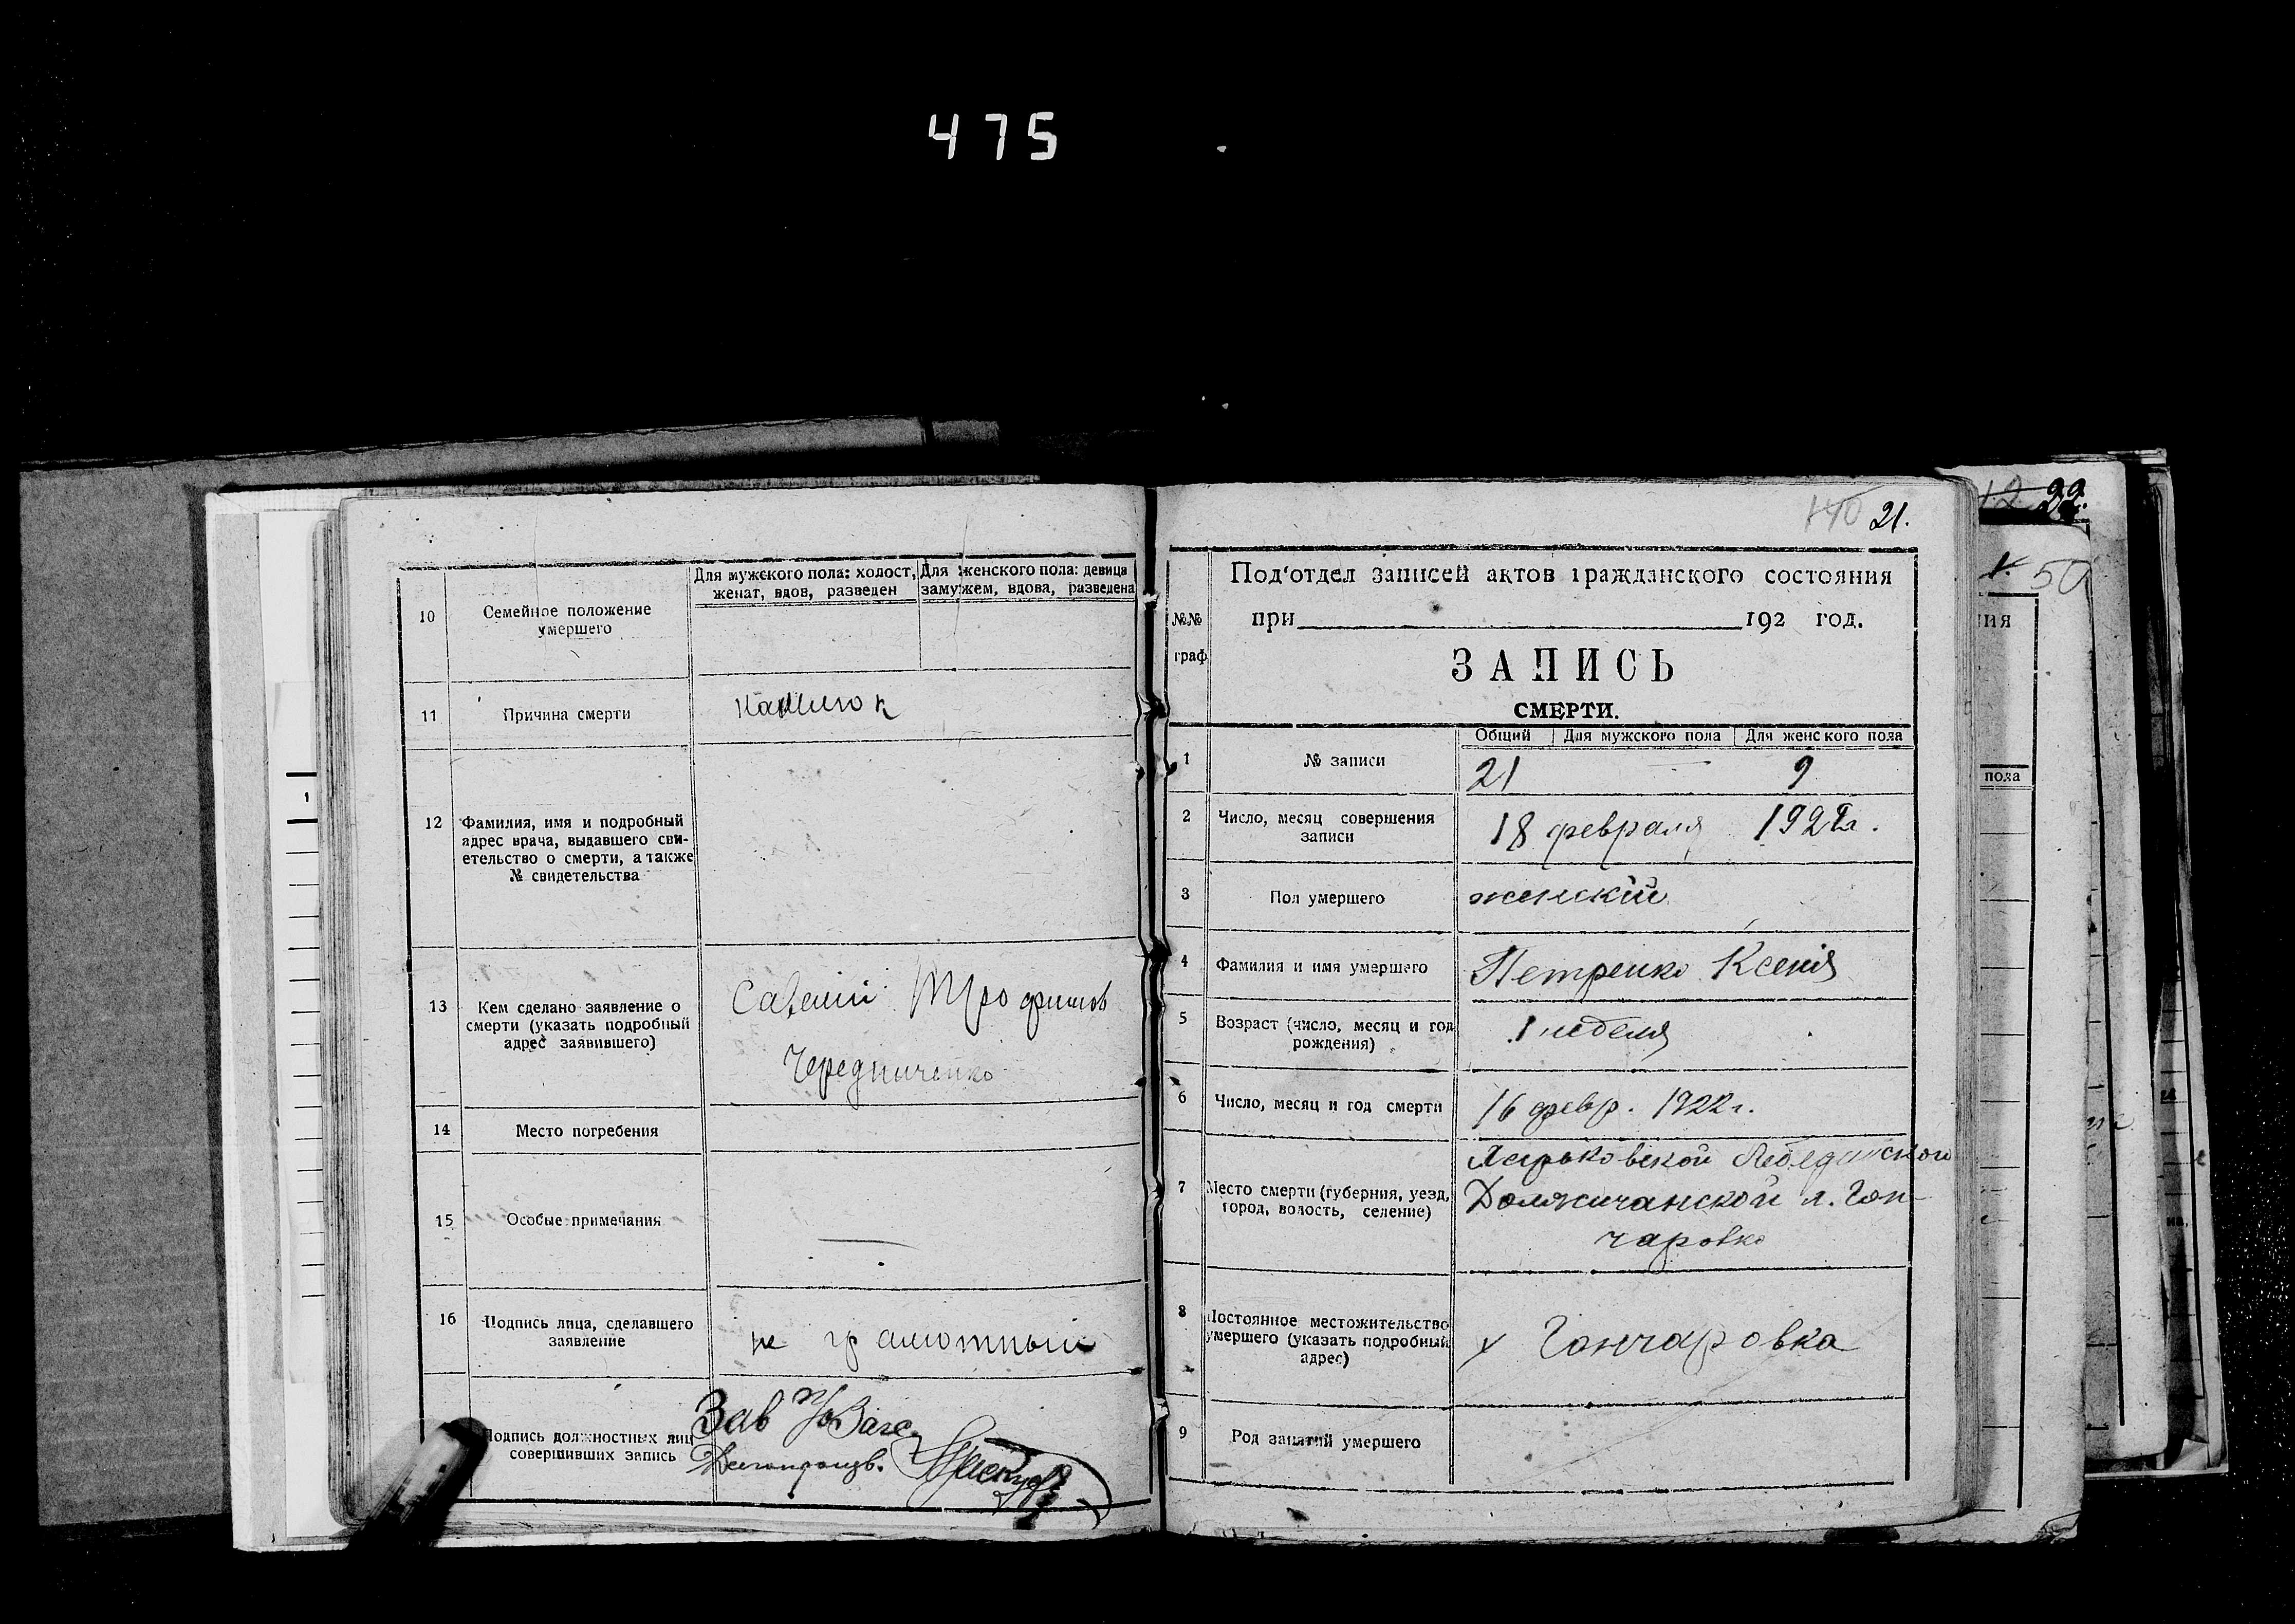 475
10
Семейное положение
умершего
Для мужского пола: холост,
женат, вдов, разведен
Для женского пола: девица
замужем, вдова, разведена
11
Причина смерти
12
Фамилия, имя и подробный
адрес врача, выдавшего сви-
етельство о смерти, а также
№ свидетельства
13
Кем сделано заявление о
смерти (указать подробный
адрес заявившего)
Савелий Трофимов
Чередниченко
14
Место погребения
15
Особые примечания
16
Подпись лица, сделавшего
заявление
не грамотный
Подпись должностных лиц
совершивших запись
Зав
140 21.
№№
граф
Под'отдел записей актов гражданского состояния
при 192 год.
ЗАПИСЬ
СМЕРТИ.
Общий Для мужского пола Для женского пола
1
№ записи
21 — 9
2
Число, месяц совершения
записи
18 февраля 1922г.
3
Пол умершего
женский
4
Фамилия и имя умершего
Петренко Ксенія
5
Возраст (число, месяц и год
рождения)
1 неделя
6
Число, месяц и год смерти
16 февр. 1922 г.
7
Место смерти (губерния, уезд,
город, волость, селение)
Харьковской Лебединской
Должичанской х. Гон-
чаровка
8
Постоянное местожительство
умершего (указать подробный
адрес)
х Гончаровка
9
Род занятий умершего
22.
50
ния
пола